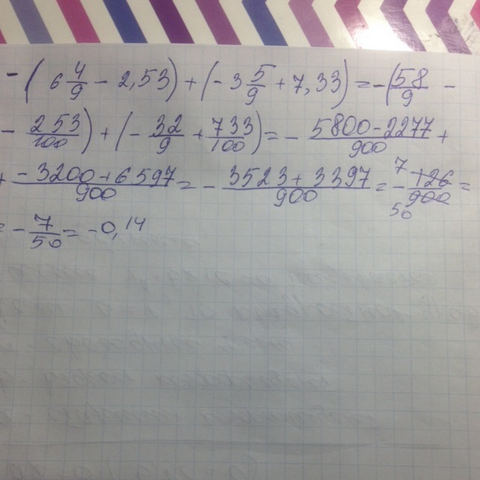 -(6 4/9 - 2,53) + (-3 5/9 + 7,33) = -(58/9 -
- 253/100) + (-32/9 + 733/100) = - 5800-2277/900 +
+ -3200+6597/900 = - 3523+3397/900 = 7 - 126/900 50 =
= - 7/50 = -0,14